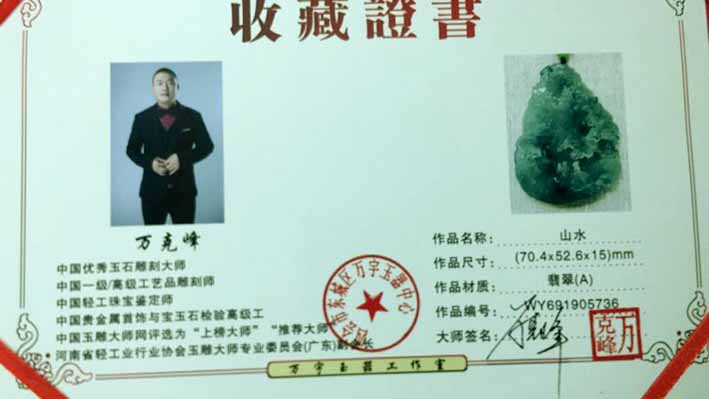 收藏證書
万克峰
中国优秀玉石雕刻大师
中国一级/高级工艺品雕刻师
中国轻工珠宝鉴定师
中国贵金属首饰与宝玉石检验高级工
中国玉雕大师网评选为“上榜大师”“推荐大师”
河南省轻工业行业协会玉雕大师专业委员会(广东)副会长
作品名称： 山水
作品尺寸： (70.4x52.6x15)mm
作品材质： 翡翠(A)
作品编号： WY691905736
大师签名：
万克峰
会市东城区万宇玉器中心
万宇玉器工作室